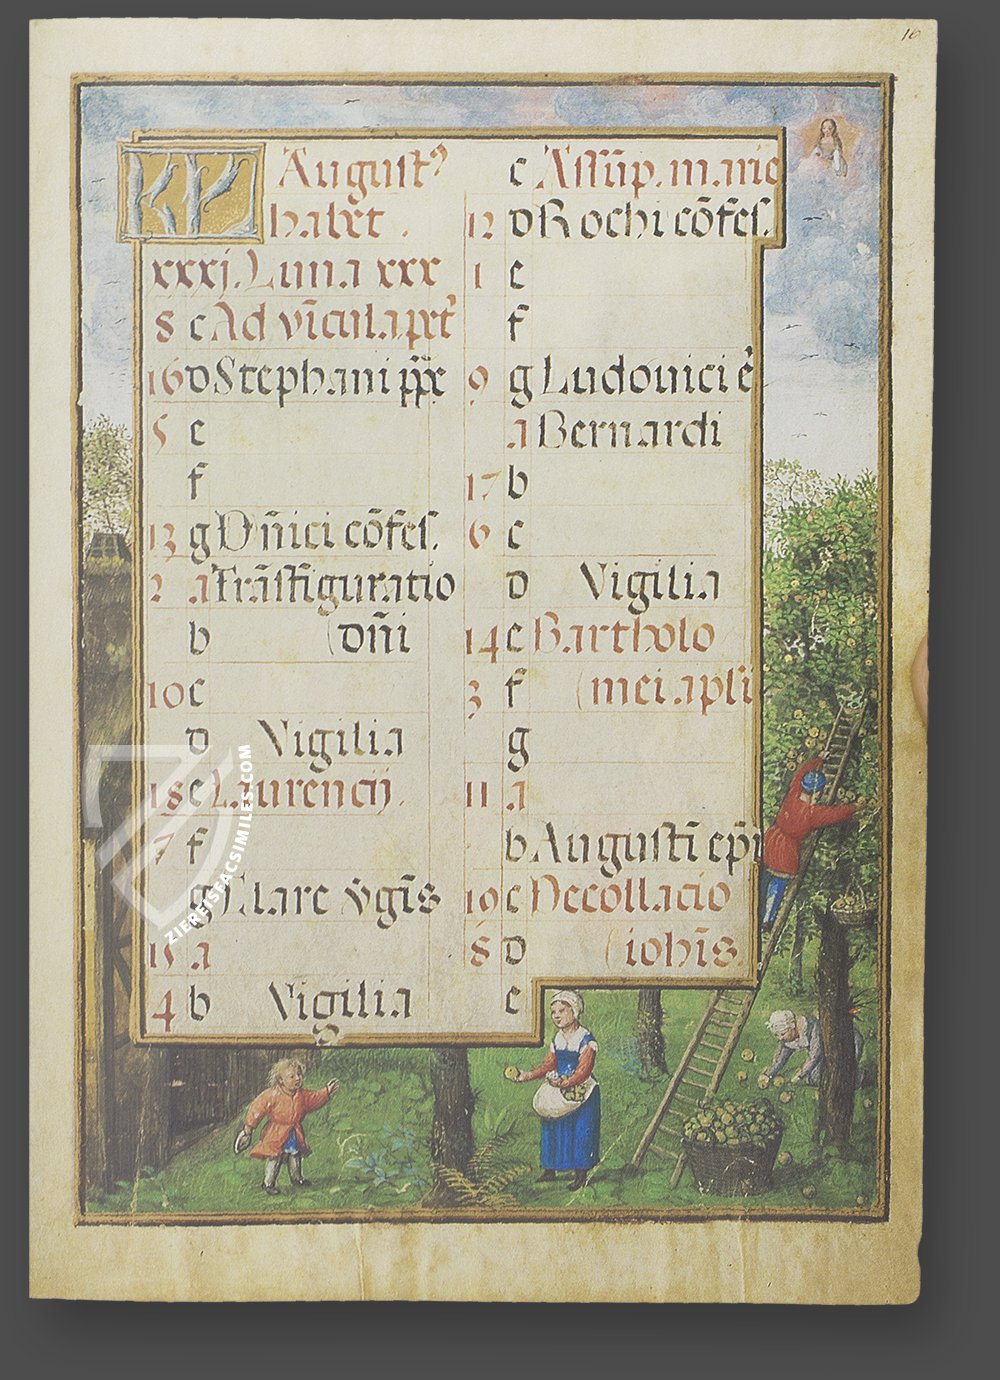 16
KL August⁹
habet .
xxxj. Luna xxx
8 c Ad vīcula pet̄
16 d Stephani ppe
5 e
f
13 g Dñici cōfes.
2 a Trāsfiguratio
b (dñi
10 c
d Vigilia
18 e Laurencij.
7 f
g Clare v̄gīs
15 a
4 b Vigilia
c Assūp. marie
12 d Rochi cōfes.
1 e
f
9 g Ludovici ē
a Bernardi
17 b
6 c
d Vigilia
14 e Bartholo
3 f (mei apli
g
11 a
b Augustī ep̄i
19 c Decollacio
8 d (iohīs.
e
ZIEREISFACSIMILES.COM